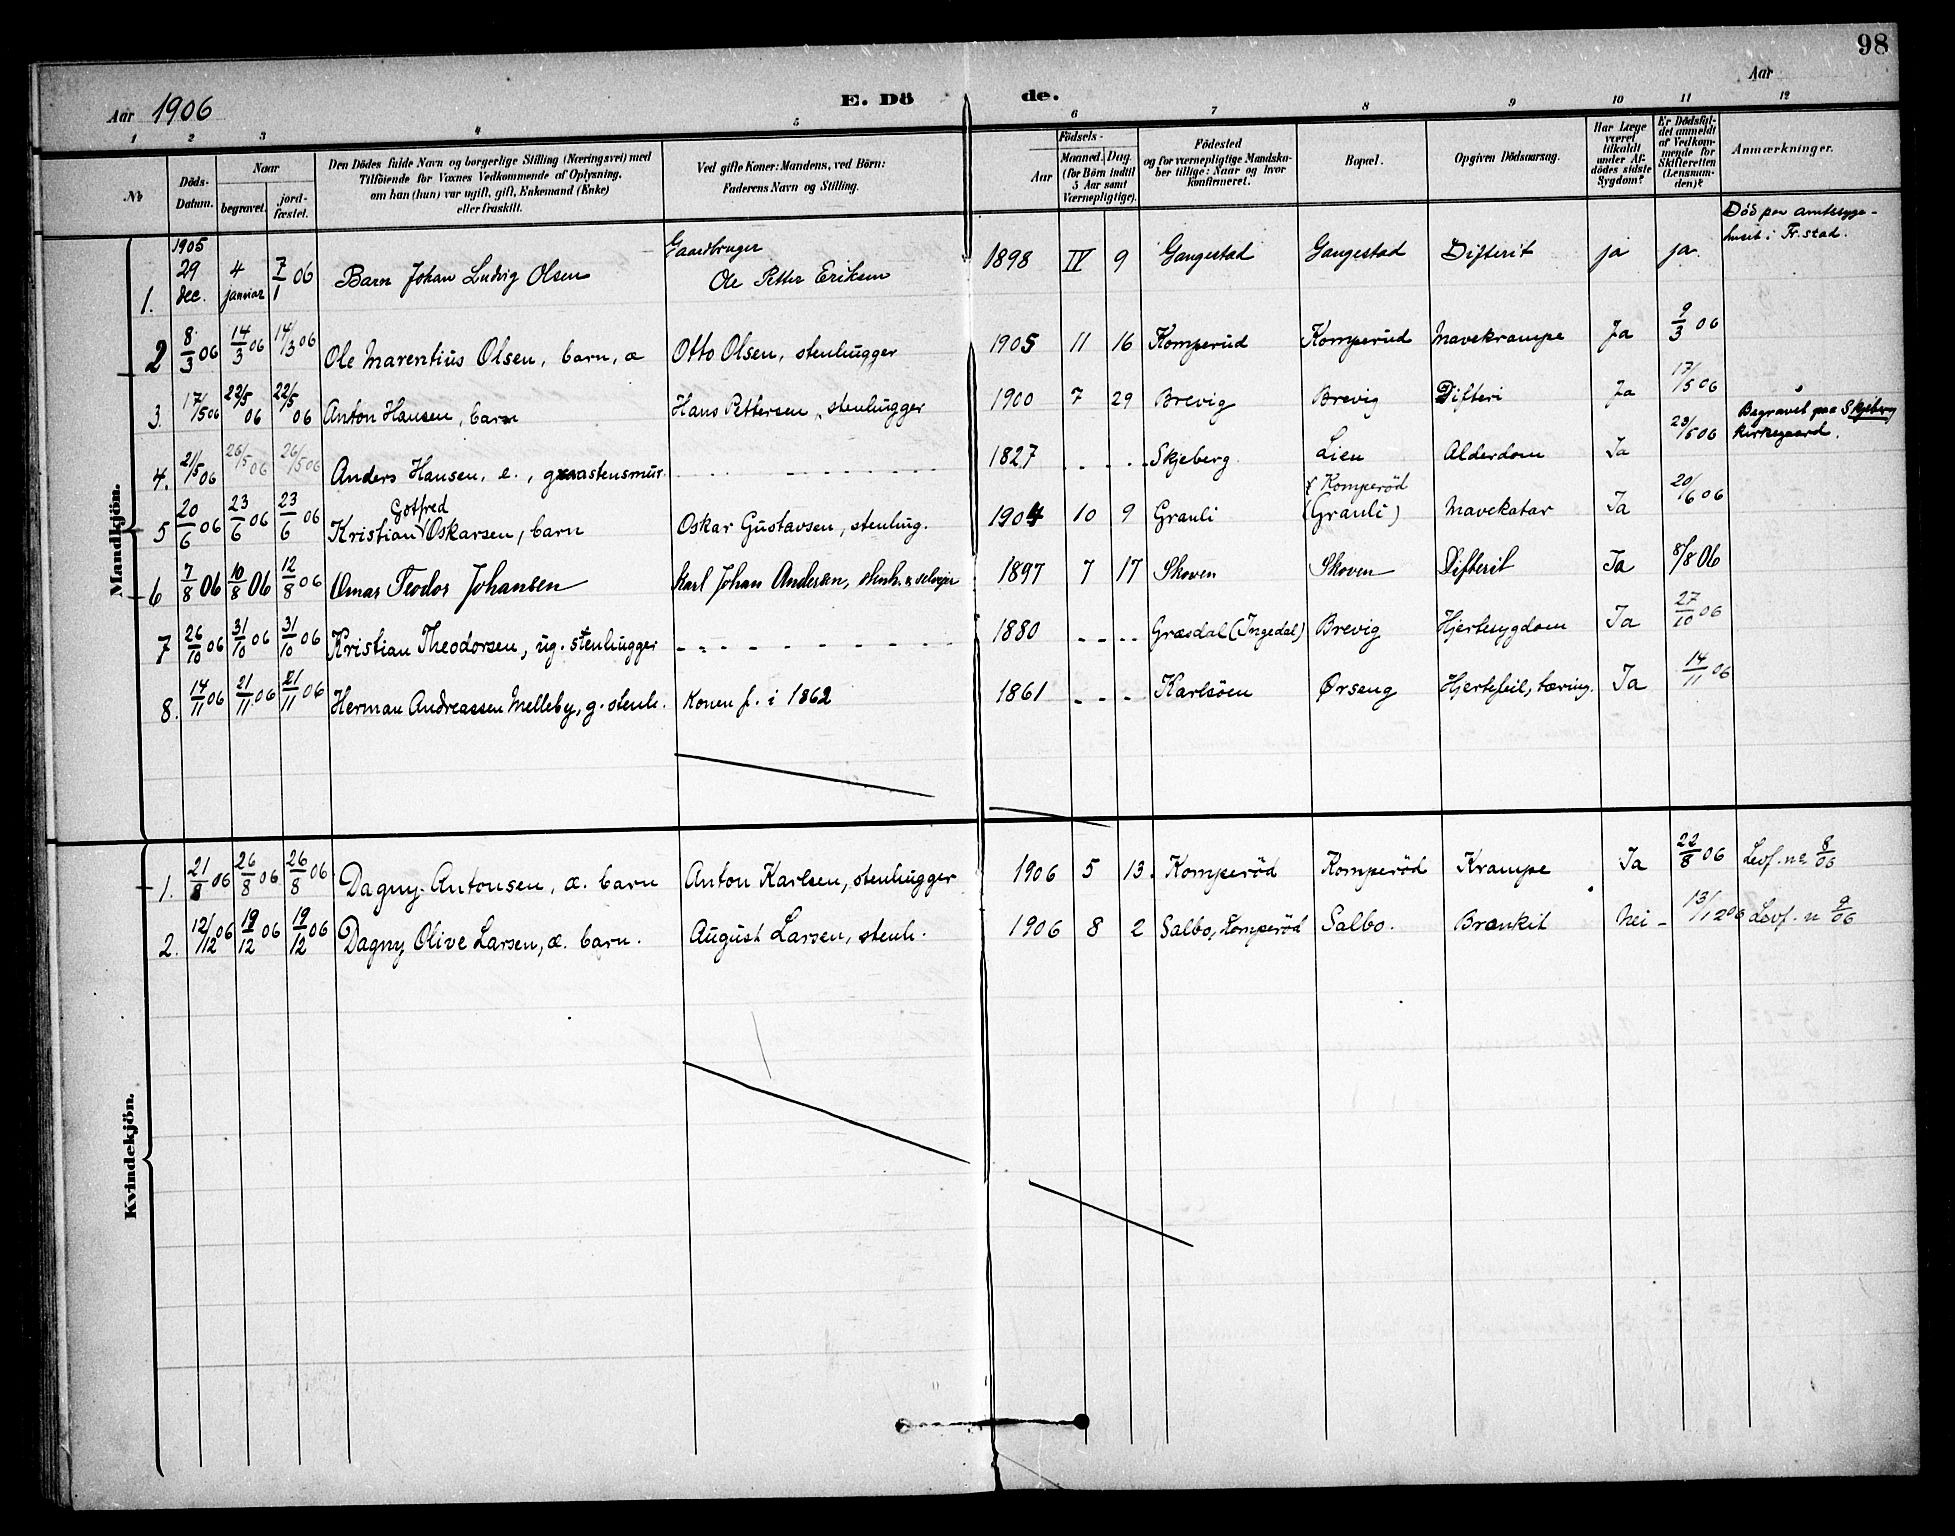 98
Aar 1906
E. Dö de.
Aar
1 2 3 4 5 6 7 8 9 10 11 12
№
Döds-Datum.
Naar
begravet.
jord-fæstet.
Den Dödes fulde Navn og borgerlige Stilling (Næringsvei) med
Tilföiende for Voxnes Vedkommende af Oplysning,
om han (hun) var ugift, gift, Enkemand (Enke)
eller fraskilt.
Ved gifte Koner: Mandens, ved Börn:
Faderens Navn og Stilling.
Födsels-
Aar
Maaned. Dag.
(for Börn indtil
5 Aar samt
Værnepligtige).
Födested
og for værnepligtige Mandska-
ber tillige: Naar og hvor
konfirmeret.
Bopæl.
Opgiven Dödsaarsag.
Har Læge
været
tilkaldt
under Af-
dödes sidste
Sygdom?
Er Dödsfal-
det anmeldt
af Vedkom-
mende for
Skifteretten
(Lensman-
den)?
Anmærkninger.
Mandkjön.
1. 1905 29 dec. 4 januar 7/1 06 Barn Johan Ludvig Olsen Gaardbruger Ole Petter Eriksen 1898 IV 9 Gangestad Gangestad Difterit ja ja. Död paa amtssyge-
huset i Fr.stad.
2 8/3 06 14/3 06 14/3 06 Ole Marentius Olsen, barn, æ Otto Olsen, stenhugger 1905 11 16 Komperud Komperud Mavekrampe Ja 9/3 06
3. 17/5 06 22/5 06 22/5 06 Anton Hansen, barn Hans Pettersen, stenhugger 1900 7 29 Brevig Brevig Difteri Ja 17/5 06
4. 21/5 06 26/5 06 26/5 06 Anders Hansen, e., graastensmur. 1827 Skjeberg. Lien Alderdom Ja 23/5 06 Begravet paa Skjeberg
kirkegaard.
5 20/6 06 23/6 06 23/6 06 Kristian Gotfred Oskarsen, barn Oskar Gustavsen, stenhug. 1904 10 9 Grauli Komperöd (Grauli) Mavekatar Ja 20/6 06
6 7/8 06 10/8 06 12/8 06 Omar Teodor Johansen Karl Johan Andersen, stenh. & selveier 1897 7 17 Skoven Skoven Difterit Ja 8/8 06
7 26/10 06 31/10 06 31/10 06 Kristian Theodorsen, ug. stenhugger 1880 Græsdal (Ingedal) Brevig Hjertesygdom Ja 27/10 06
8. 14/11 06 21/11 06 21/11 06 Herman Andreassen Melleby, g. stenh. Konen f. i 1862 1861 Karlsöen Ørseng Hjertefeil, tæring. Ja 14/11 06
Kvindekjön.
1. 21/8 06 26/8 06 26/8 06 Dagny Antonsen, æ. barn Anton Karlsen, stenhugger 1906 5 13. Komperöd Komperöd Krampe Ja 22/8 06 Levf. no 8/06
2. 12/12 06 19/12 06 19/12 06 Dagny Olive Larsen, æ. barn. August Larsen, stenh. 1906 8 2 Salbo, Komperöd Salbo. Bronkit Nei - 13/12 06 Levf. n 9/06